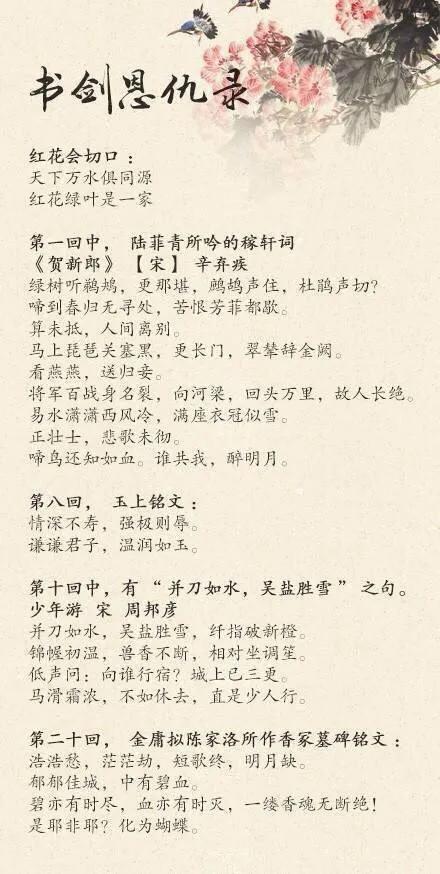 书剑恩仇录
红花会切口：
天下万水俱同源
红花绿叶是一家
第一回中， 陆菲青所吟的稼轩词
《贺新郎》 【宋】 辛弃疾
绿树听鹈鴂，更那堪，鹧鸪声住，杜鹃声切？
啼到春归无寻处，苦恨芳菲都歇。
算未抵，人间离别。
马上琵琶关塞黑，更长门，翠辇辞金阙。
看燕燕，送归妾。
将军百战身名裂，向河梁，回头万里，故人长绝。
易水潇潇西风冷，满座衣冠似雪。
正壮士，悲歌未彻。
啼鸟还知如血。谁共我，醉明月。
第八回， 玉上铭文：
情深不寿，强极则辱。
谦谦君子，温润如玉。
第十回中，有 “ 并刀如水，吴盐胜雪 ” 之句。
少年游 宋 周邦彦
并刀如水，吴盐胜雪，纤指破新橙。
锦幄初温，兽香不断，相对坐调笙。
低声问：向谁行宿？城上已三更。
马滑霜浓，不如休去，直是少人行。
第二十回， 金庸拟陈家洛所作香冢墓碑铭文：
浩浩愁，茫茫劫，短歌终，明月缺。
郁郁佳城，中有碧血。
碧亦有时尽，血亦有时灭，一缕香魂无断绝！
是耶非耶？化为蝴蝶。